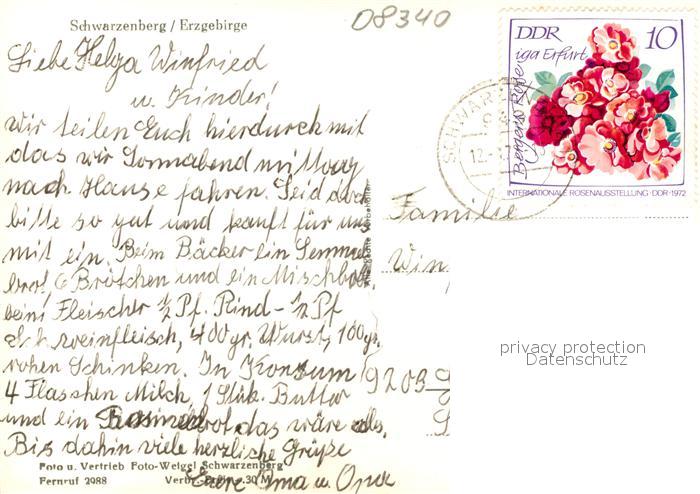 Schwarzenberg / Erzgebirge
08340
Liebe Helga Winfried
u. Kinder!
Wir teilen Euch hierdurch mit
das wir Sonnabend mittag
nach Hause fahren. Seid doch
bitte so gut und kauft für uns
mit ein. Beim Bäcker ein Semmel
brot, 6 Brötchen und ein Mischbrot
beim Fleischer ½ Pf. Rind- ½ Pf
Schweinfleisch, 400 gr. Wurst, 100 gr.
rohen Schinken. In Konsum
4 Flaschen Milch, 1 Stück. Butter
und ein Rosinenbrot, das wäre alles.
Bis dahin viele herzliche Grüße
Eure Oma u. Opa
Foto u. Vertrieb Foto-Weigel Schwarzenberg
Fernruf 2988
DDR 10
iga Erfurt
Bergers Rose
INTERNATIONALE ROSENAUSSTELLUNG · DDR · 1972
SCHWARZ
12.
Familie
Win
9203
privacy protection
Datenschutz